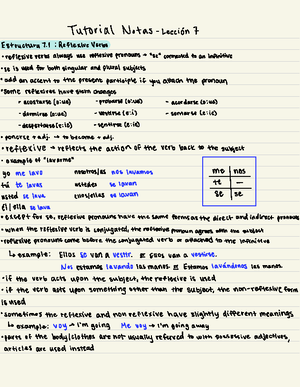 Tutorial Notas - Lección 7
Estructura 7.1 : Reflexive Verbs
• reflexive verbs always use reflexive pronouns → "se" connected to an infinitive
• se is used for both singular and plural subjects
• add an accent to the present participle if you attach the pronoun
• Some reflexives have stem changes
- acostarse (o:ue) - probarse (o:ue) - acordarse (o:ue)
- dormirse (o:ue) - vestirse (e:i) - sentarse (e:ie)
- despertarse (e:ie) - sentirse (e:ie)
• ponerse + adj. → to become + adj.
• reflexive → reflects the action of the verb back to the subject
• example of "lavarme"
yo me lavo nosotros/as nos lavamos
tú te lavas ustedes se lavan
usted se lava ellos/ellas se lavan
él/ella se lava
me nos
te —
se se
• except for se, reflexive pronouns have the same forms as the direct and indirect pronouns
• when the reflexive verb is conjugated, the reflexive pronoun agrees with the subject
• reflexive pronouns come before the conjugated verb or attached to the infinitive
↳ example: Ellos se van a vestir. = Ellos van a vestirse.
Nos estamos lavando las manos = Estamos lavándonos las manos
• if the verb acts upon the subject, the reflexive is used
• if the verb acts upon something other than the subject, the non-reflexive form is used
• sometimes the reflexive and non reflexive have slightly different meanings
↳ example: voy → I'm going Me voy → I'm going away
• parts of the body/clothes are not usually referred to with possessive adjectives,
articles are used instead